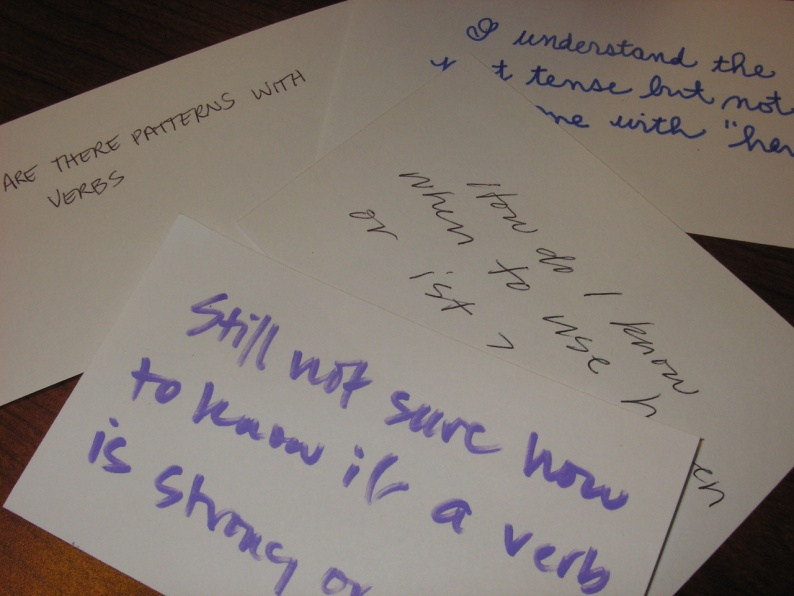 ARE THERE PATTERNS WITH
VERBS
I understand the
t tense but not
me with "ha
How do I know
when to use h
or ist ?
Still not sure how
to know if a verb
is strong or